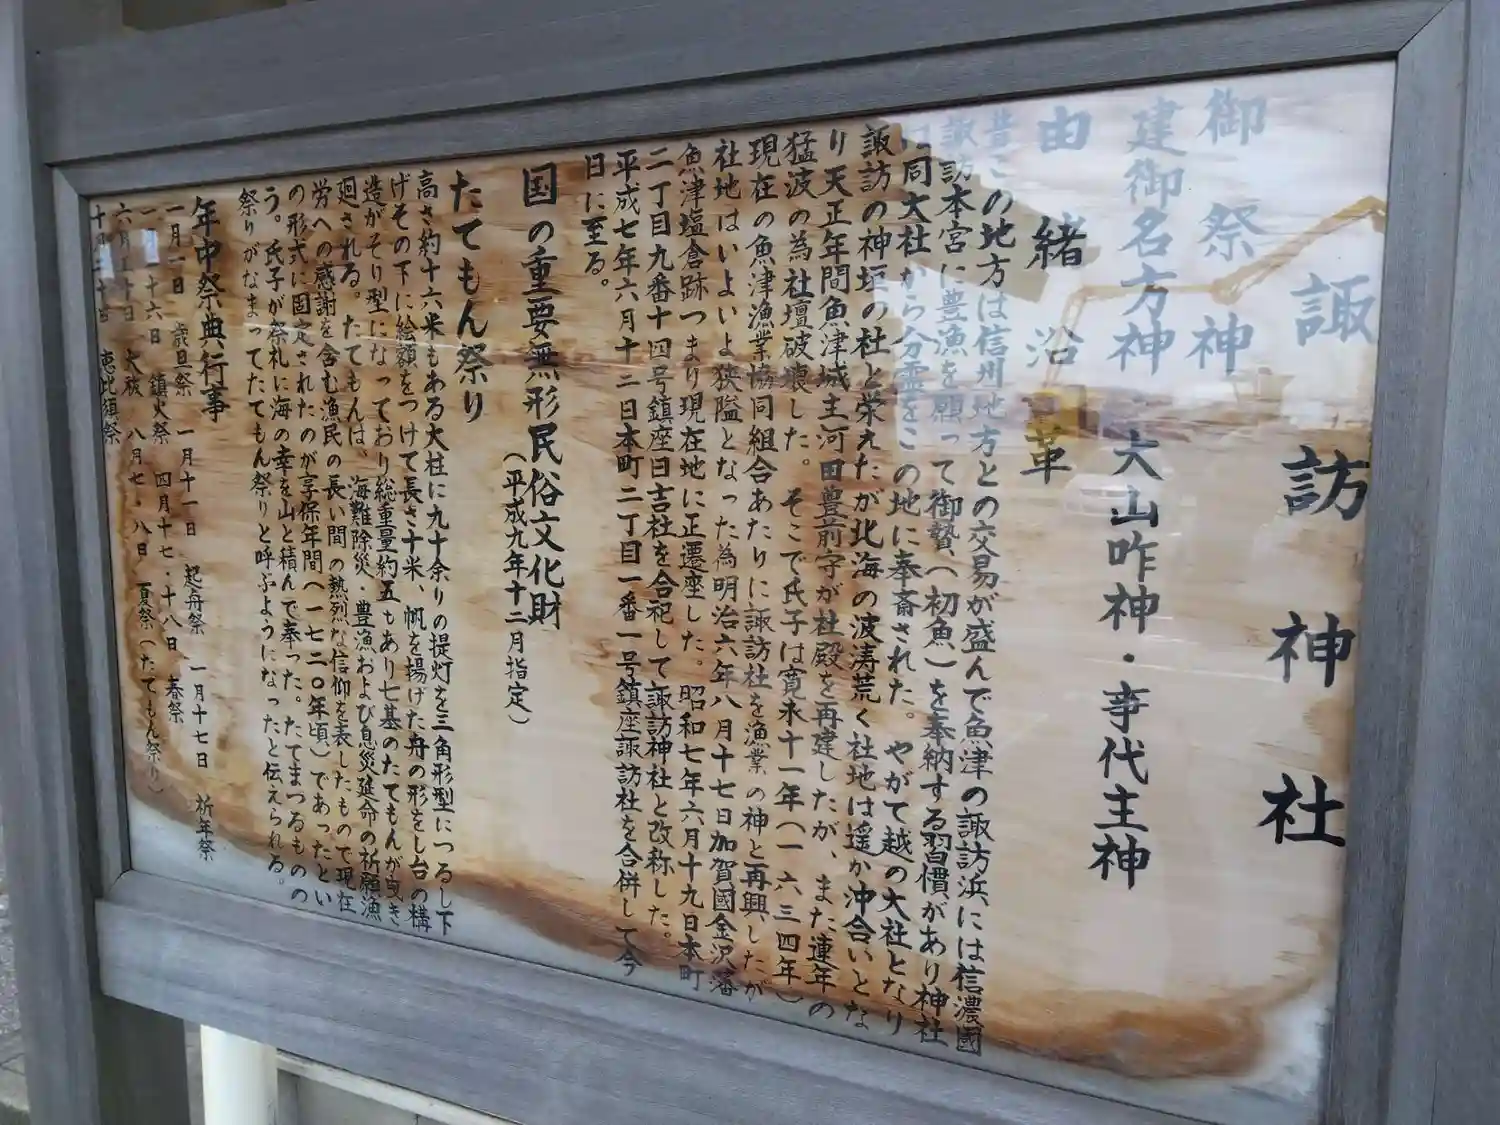 諏訪神社
御祭神
建御名方神　大山咋神・事代主神
由緒沿革
昔この地方は信州地方との交易が盛んで魚津の諏訪浜には信濃國
諏訪本宮に豊漁を願って御贄（初魚）を奉納する習慣があり神社
は同大社から分霊をこの地に奉斎された。やがて越の大社となり
諏訪の神垣の杜と栄えたが北海の波涛荒く社地は遥か沖合いとな
り天正年間魚津城主河田豊前守が社殿を再建したが、また連年の
猛波の為社壇破壊した。そこで氏子は寛永十一年（一六三四年）
現在の魚津漁業協同組合あたりに諏訪社を漁業の神と再興したが
社地はいよいよ狭隘となった為明治六年八月十七日加賀國金沢藩
魚津塩倉跡つまり現在地に正遷座した。昭和七年六月十九日本町
二丁目九番十四号鎮座日吉社を合祀して諏訪神社と改称した。
平成七年六月十二日本町二丁目一番一号鎮座諏訪社を合併して今
日に至る。
国の重要無形民俗文化財
（平成九年十二月指定）
たてもん祭り
高さ約十六米もある大柱に九十余りの提灯を三角形型につるし下
げその下に絵額をつけて長さ十米、帆を揚げた舟の形をし台の構
造がそり型になっており総重量約五もあり七基のたてもんが曳き
廻される。たてもんは、海難除災・豊漁および息災延命の祈願漁
労への感謝を含む漁民の長い間の熱烈な信仰を表したもので現在
の形式に固定されたのが享保年間（一七二〇年頃）であったとい
う。氏子が祭礼に海の幸を山と積んで奉った。たてまつるものの
祭りがなまってたてもん祭りと呼ぶようになったと伝えられる。
年中祭典行事
一月一日　歳旦祭　一月十一日　起舟祭　一月十七日　祈年祭
十六日　鎮火祭　四月十七・十八日　春祭
六月三十日　大祓　八月七・八日　夏祭（たてもん祭り）
恵比須祭